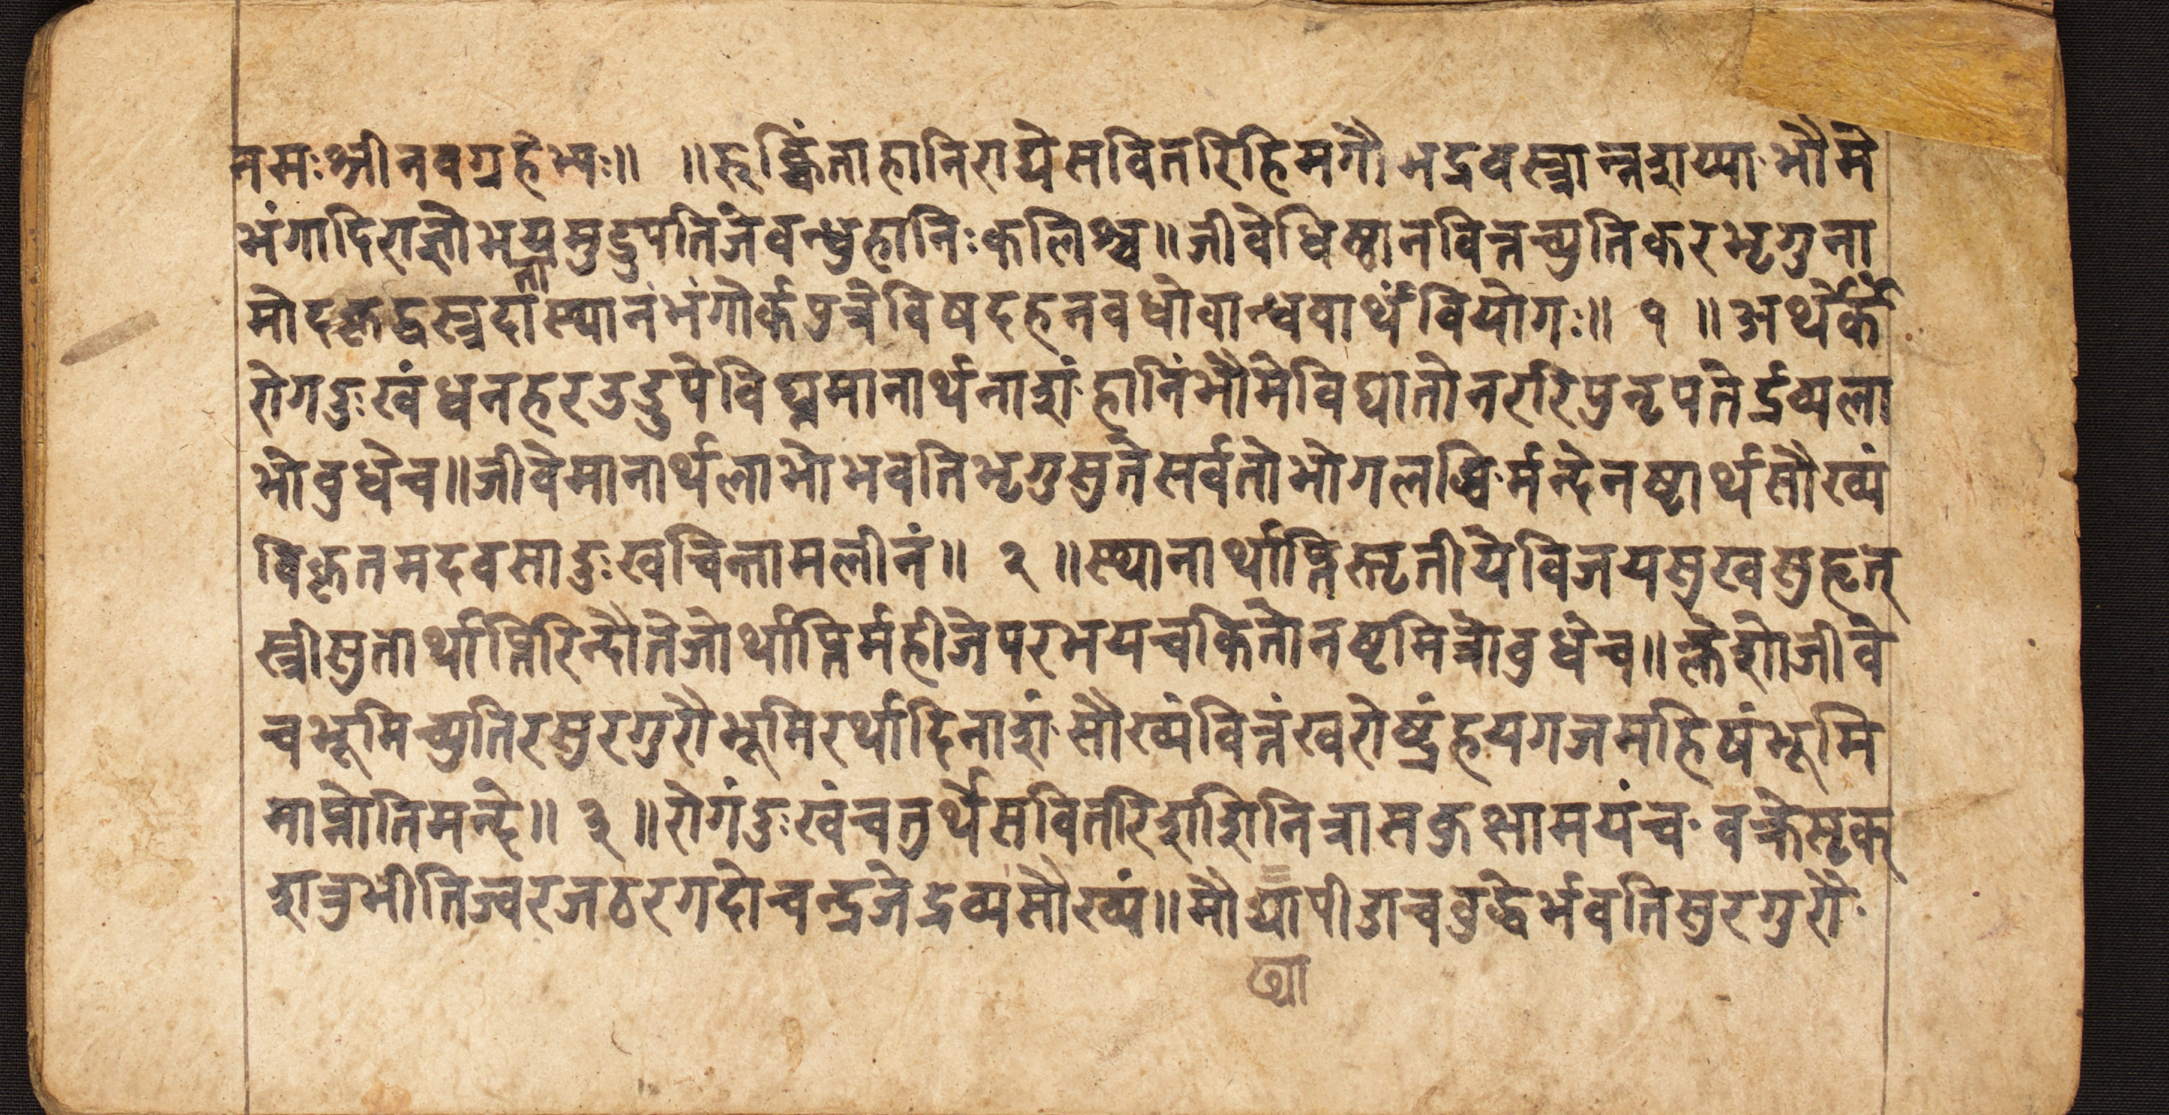 नमःश्रीनवग्रहेभ्यः॥ ॥रुक्चिंताहानिराद्येसवितरिहिमगौ भद्रवस्त्रान्नशय्याः भौमे
भंगादिराज्ञोभयमुडुपतिजेवन्धुहानिःकलिश्च॥जीवेधिस्थानवित्तच्युतिकरभृगुना
मोदकृद्वस्त्रदाता स्थानंभंगोर्कपुत्रेविषदहनवधोवान्धवार्थेवियोगः॥ १ ॥अर्थेर्के
रोगदुःखंधनहरउडुपेविघ्नमानार्थनाशः हानिंभौमेविघातोनररिपुनृपतेर्द्रव्यला
भोवुधेच॥जीवेमानार्थलाभोभवतिभृगुसुतेसर्वतोभोगलब्धिर्मन्देनष्टार्थसौख्यं
विकृतमदवसादुःखचिन्तामलीनं॥ २ ॥स्थानार्थाप्तिस्तृतीयेविजयसुखसुहृत्
स्त्रीसुतार्थाप्तिरिन्दौतेजोर्थाप्तिर्महीजेपरभयचकितोनष्टमित्रोवुधेच॥क्लेशोजीवे
चभूमिच्युतिरसुरगुरौभूमिरर्थादिनाशः सौख्यंवित्तंखरोष्ट्रंहयगजमहिषंभूमि
माप्नोतिमन्दे॥ ३ ॥रोगंदुःखंचतुर्थेसवितरिशशिनित्रासकुक्षामयंच वक्रेसृक्
शत्रुभीतिज्वरजठरगदोचन्द्रजेद्रव्यसौख्यं॥मौख्यापीडाचवुद्धेर्भवतिसुरगुरौः
ख्या